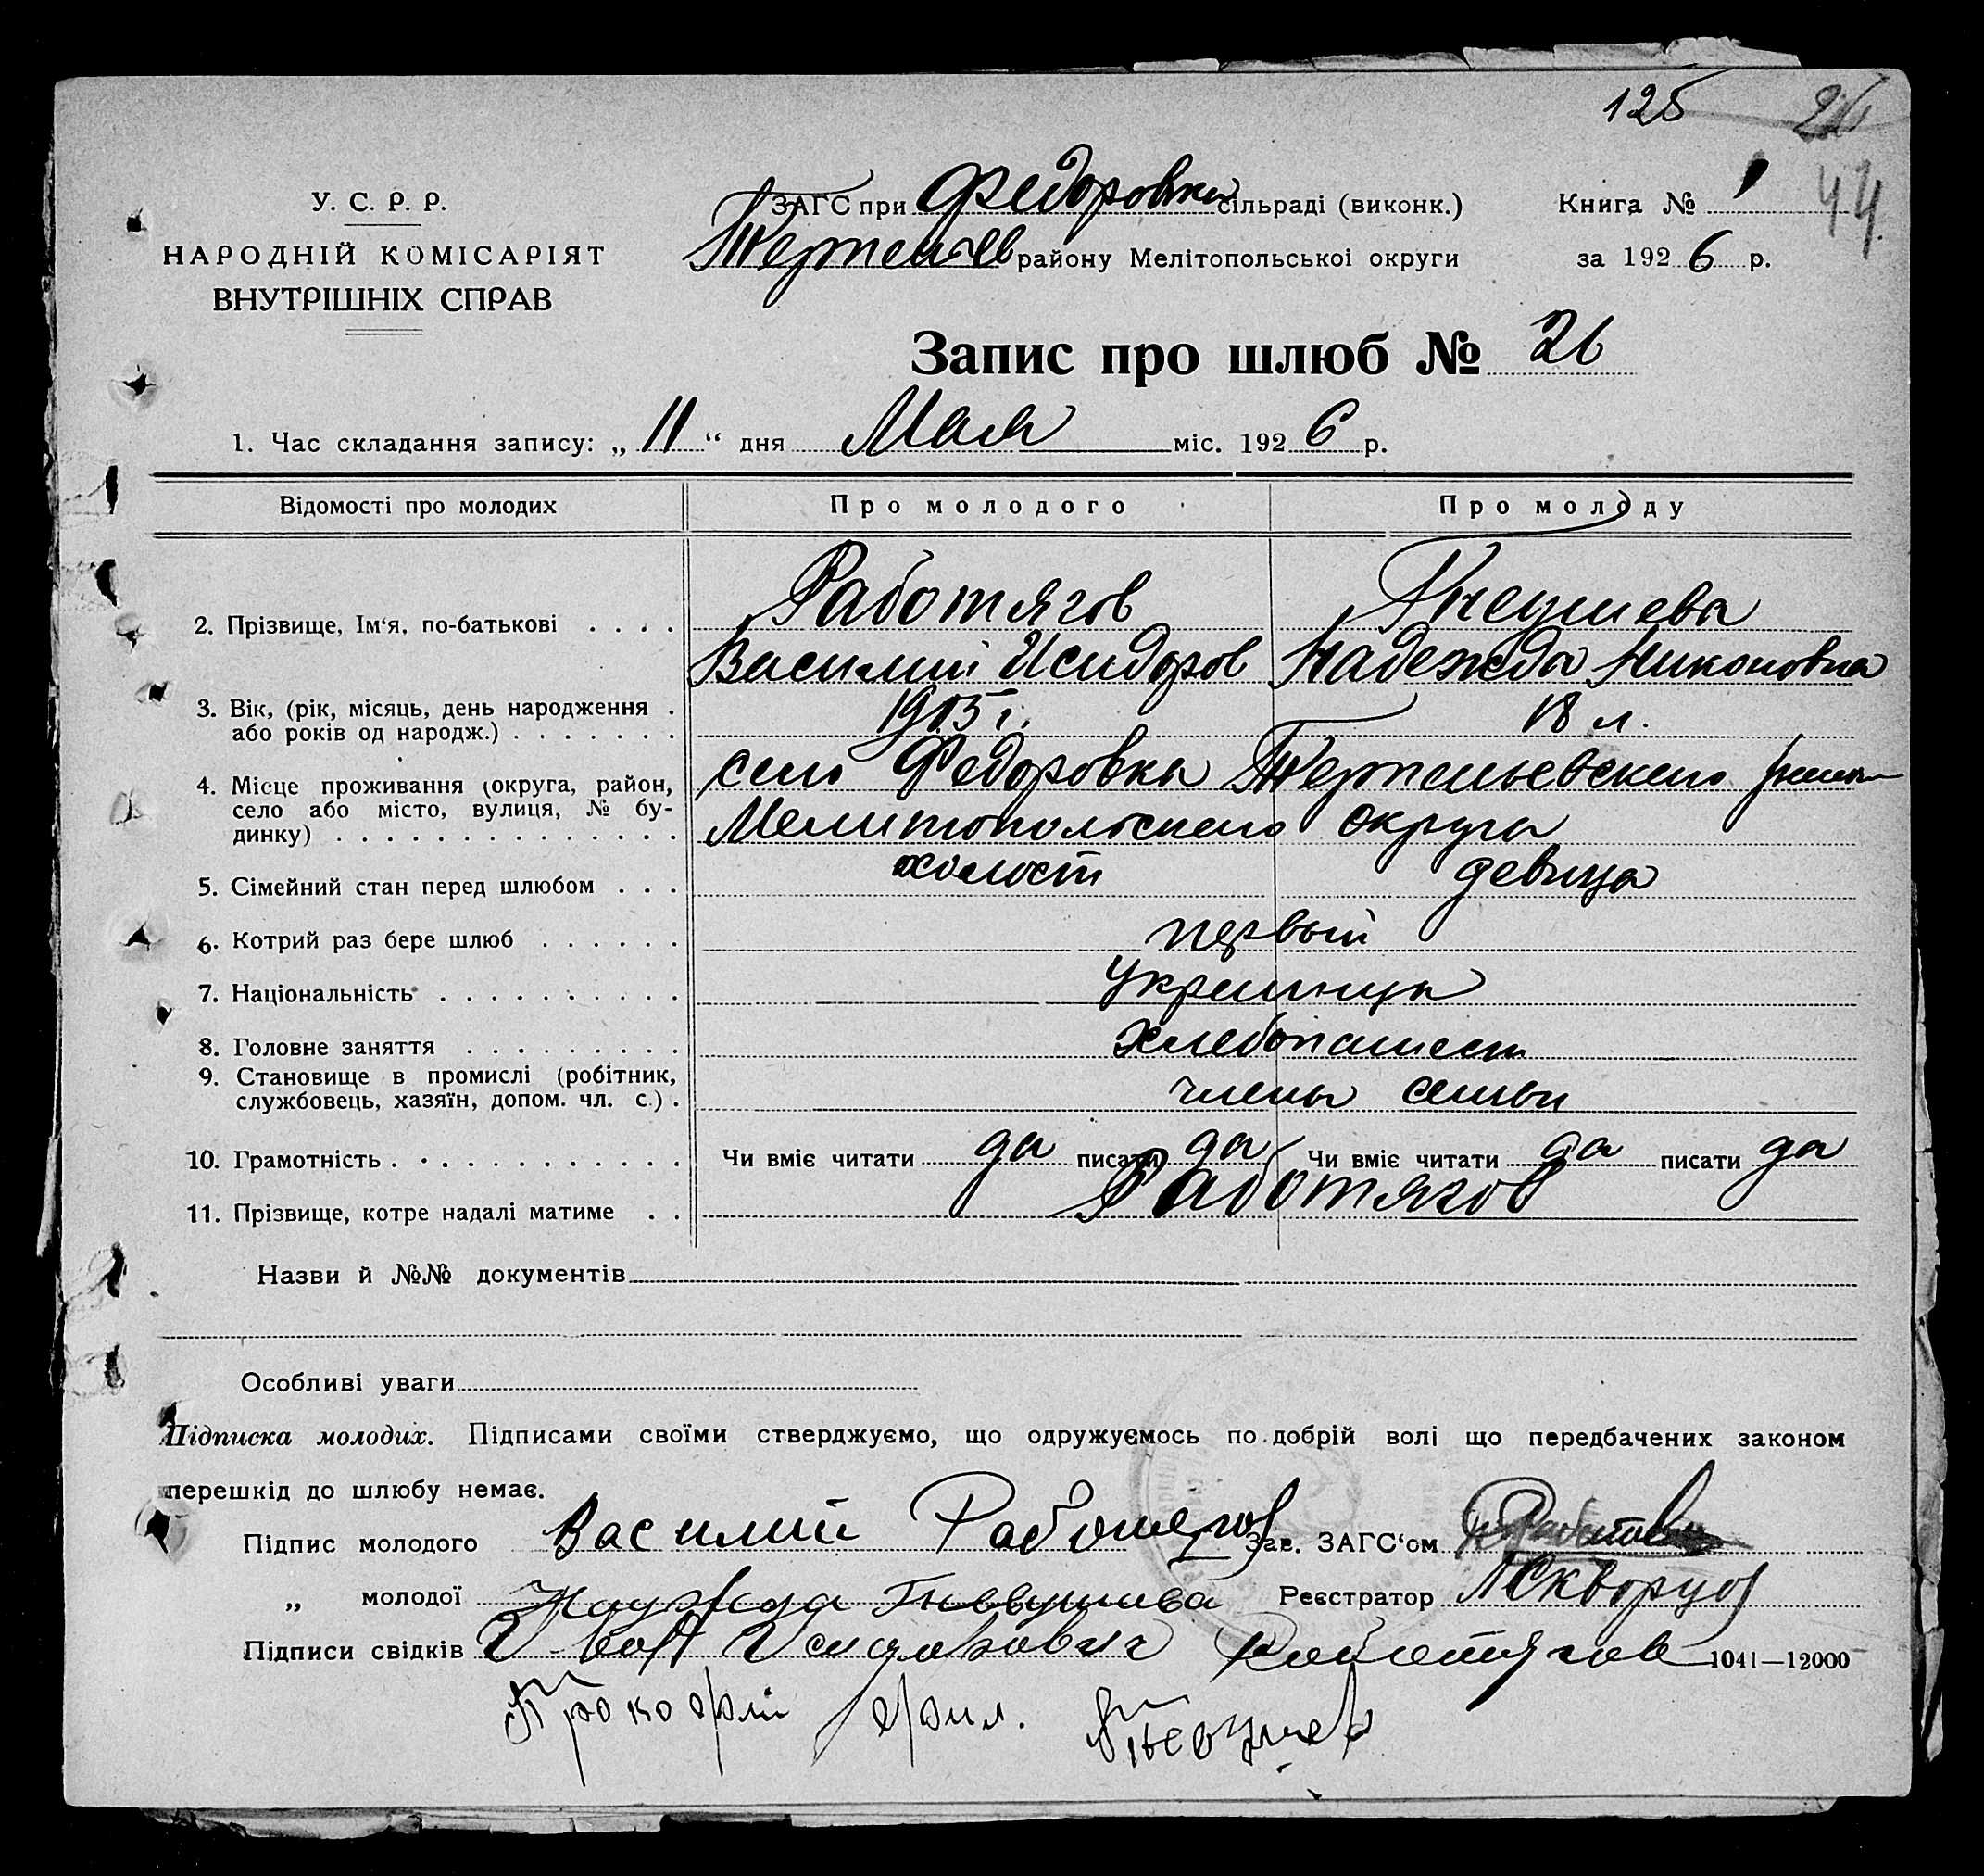 125 26
44
У. С. Р. Р.
НАРОДНІЙ КОМІСАРІЯТ
ВНУТРІШНІХ СПРАВ
ЗАГС при Федоровка сільраді (виконк.)
району Мелітопольської округи
Книга № 1
за 1926 р.
Запис про шлюб № 26
1. Час складання запису: „11“ дня Мая міс. 1926 р.
Відомості про молодих Про молодого Про молоду
2. Прізвище, Ім‘я, по-батькові . . . . Работягов
Василий Исидоров Надежда Никоновна
3. Вік, (рік, місяць, день народження .
або років од народж.) . . . . . . . 1905 г. 18 л.
4. Місце проживання (округа, район,
село або місто, вулиця, № бу-
динку) . . . . . . . . . . . . . .
село Федоровка
Мелитопольского округа
5. Сімейний стан перед шлюбом . . . холост девица
6. Котрий раз бере шлюб . . . . . . первый
7. Національність . . . . . . . . . . украинцы
8. Головне заняття . . . . . . . . .
9. Становище в промислі (робітник,
службовець, хазяїн, допом. чл. с.) . члены семьи
10. Грамотність . . . . . . . . . . . . Чи вміє читати да писати да Чи вміє читати да писати да
11. Прізвище, котре надалі матиме . . Работягов
Назви й №№ документів
Особливі уваги
Підписка молодих. Підписами своїми стверджуємо, що одружуємось по добрій волі що передбачених законом
перешкід до шлюбу немає.
Підпис молодого Василий Работягов Зав. ЗАГС‘ом
„ молодої Реєстратор Скворцов
Підписи свідків Работягов 1041—12000
Прокофий